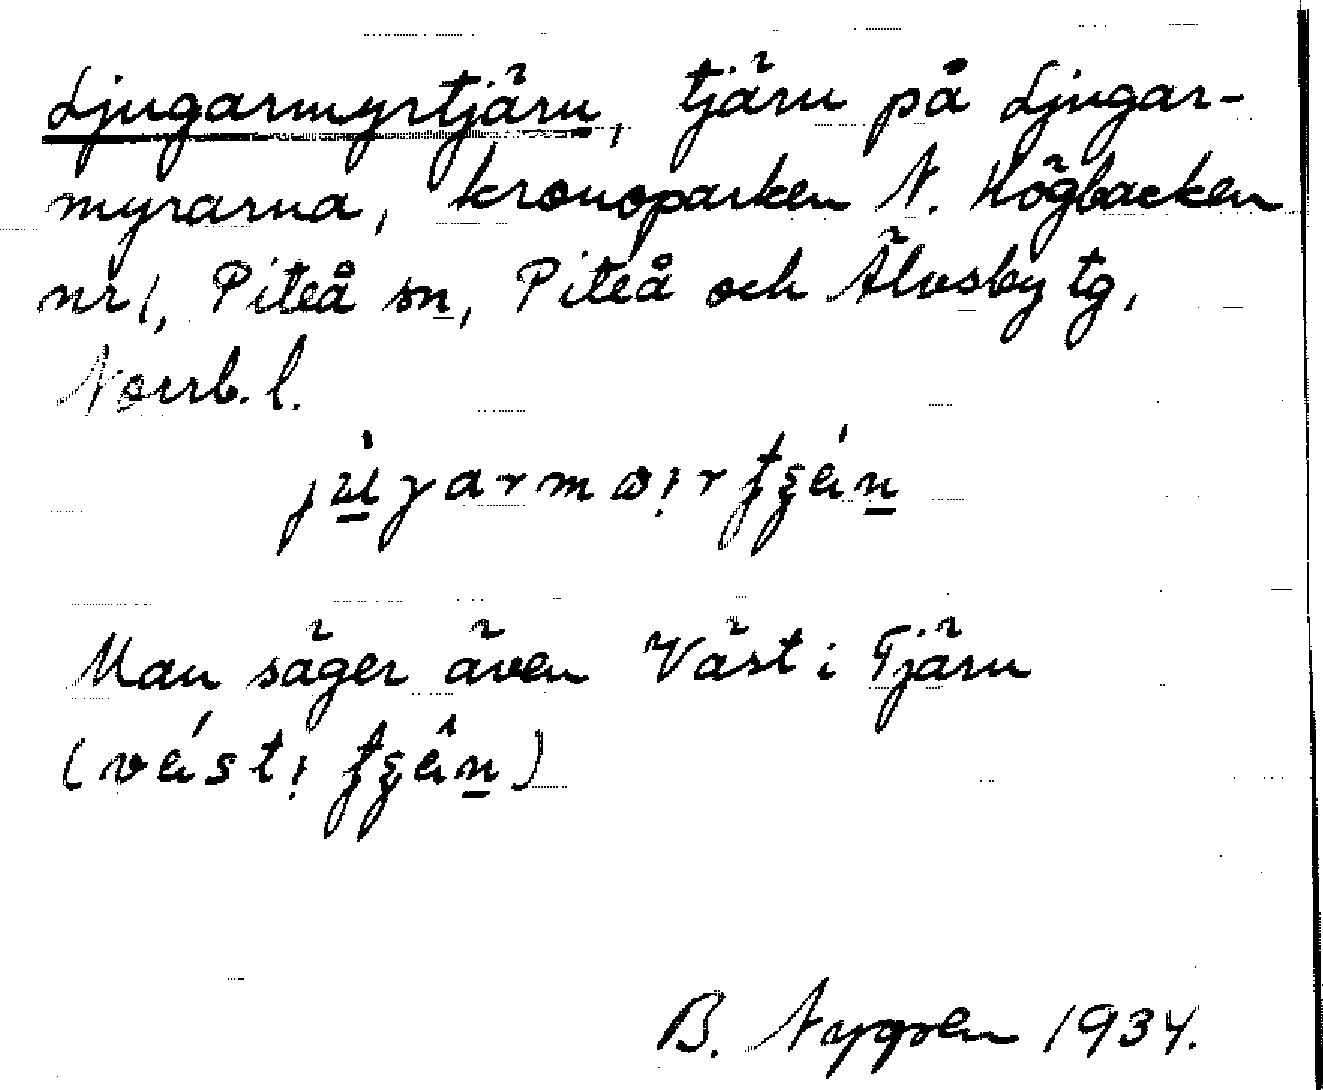 Ljugarmyrtjärn, tjärn på Ljugar-
myrarna, kronoparken N. Högbacken
nr 1, Piteå sn, Piteå och Älvsby tg,
Norrb. l.
Man säger även Väst i Tjärn
B. Nygren 1934.